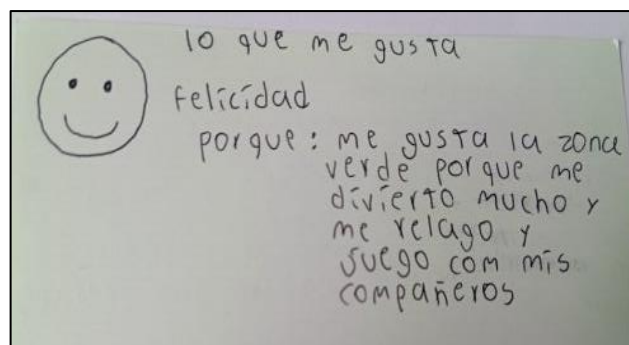 lo que me gusta
felicidad
porque: me gusta la zona
verde porque me
divierto mucho y
me relago y
juego com mis
compañeros